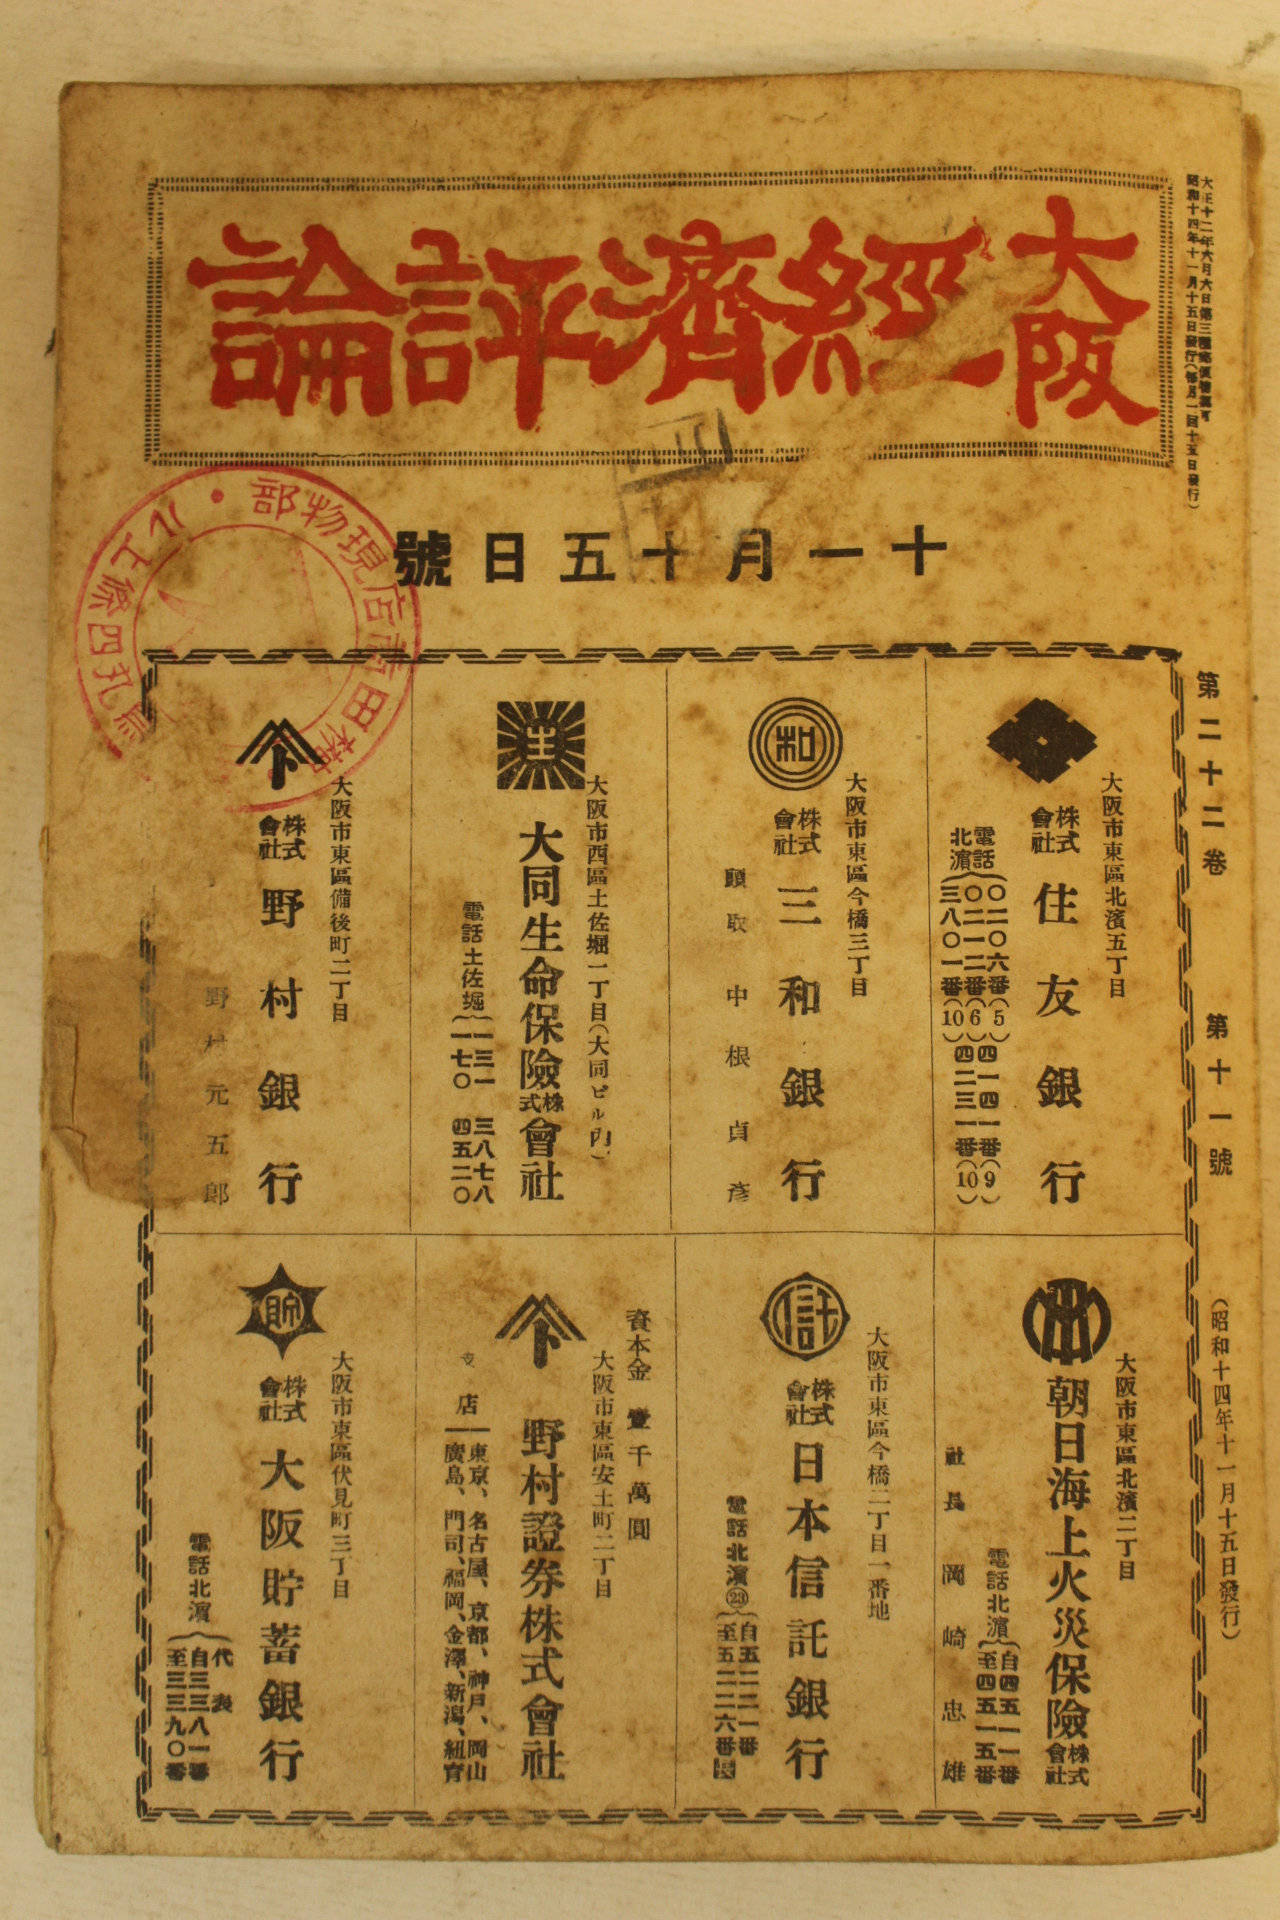 大正十二年六月六日第三種郵便物認可
昭和十四年十一月十五日發行(每月一回十五日發行)
大阪經濟評論
十一月十五日號
第二十二卷 第十一號 (昭和十四年十一月十五日發行)
大阪市東區北濱五丁目
株式會社 住友銀行
電話北濱
〇二〇六番(5) 四一四一番(9)
〇二一二番(6)
三八〇一番(10) 四二三一番(10)
大阪市東區今橋三丁目
和
株式會社 三和銀行
頭取 中根貞彥
大阪市西區土佐堀一丁目(大同ビル內)
生
大同生命保險株式會社
電話土佐堀
一三一 三八七八
一七〇 四五二〇
大阪市東區備後町二丁目
株式會社 野村銀行
野村元五郎
大阪市東區北濱二丁目
朝日海上火災保險株式會社
電話北濱
自四五一一番
至四五一五番
社長 岡崎忠雄
大阪市東區今橋二丁目一番地
信託
株式會社 日本信託銀行
電話北濱㉓
自五二二一番
至五二二六番長
資本金 壹千萬圓
大阪市東區安土町二丁目
野村證券株式會社
支店
東京、名古屋、京都、神戶、岡山
廣島、門司、福岡、金澤、新潟、紐育
大阪市東區伏見町三丁目
貯
株式會社 大阪貯蓄銀行
電話北濱
代表
自三三八一番
至三三九〇番
商店現物部